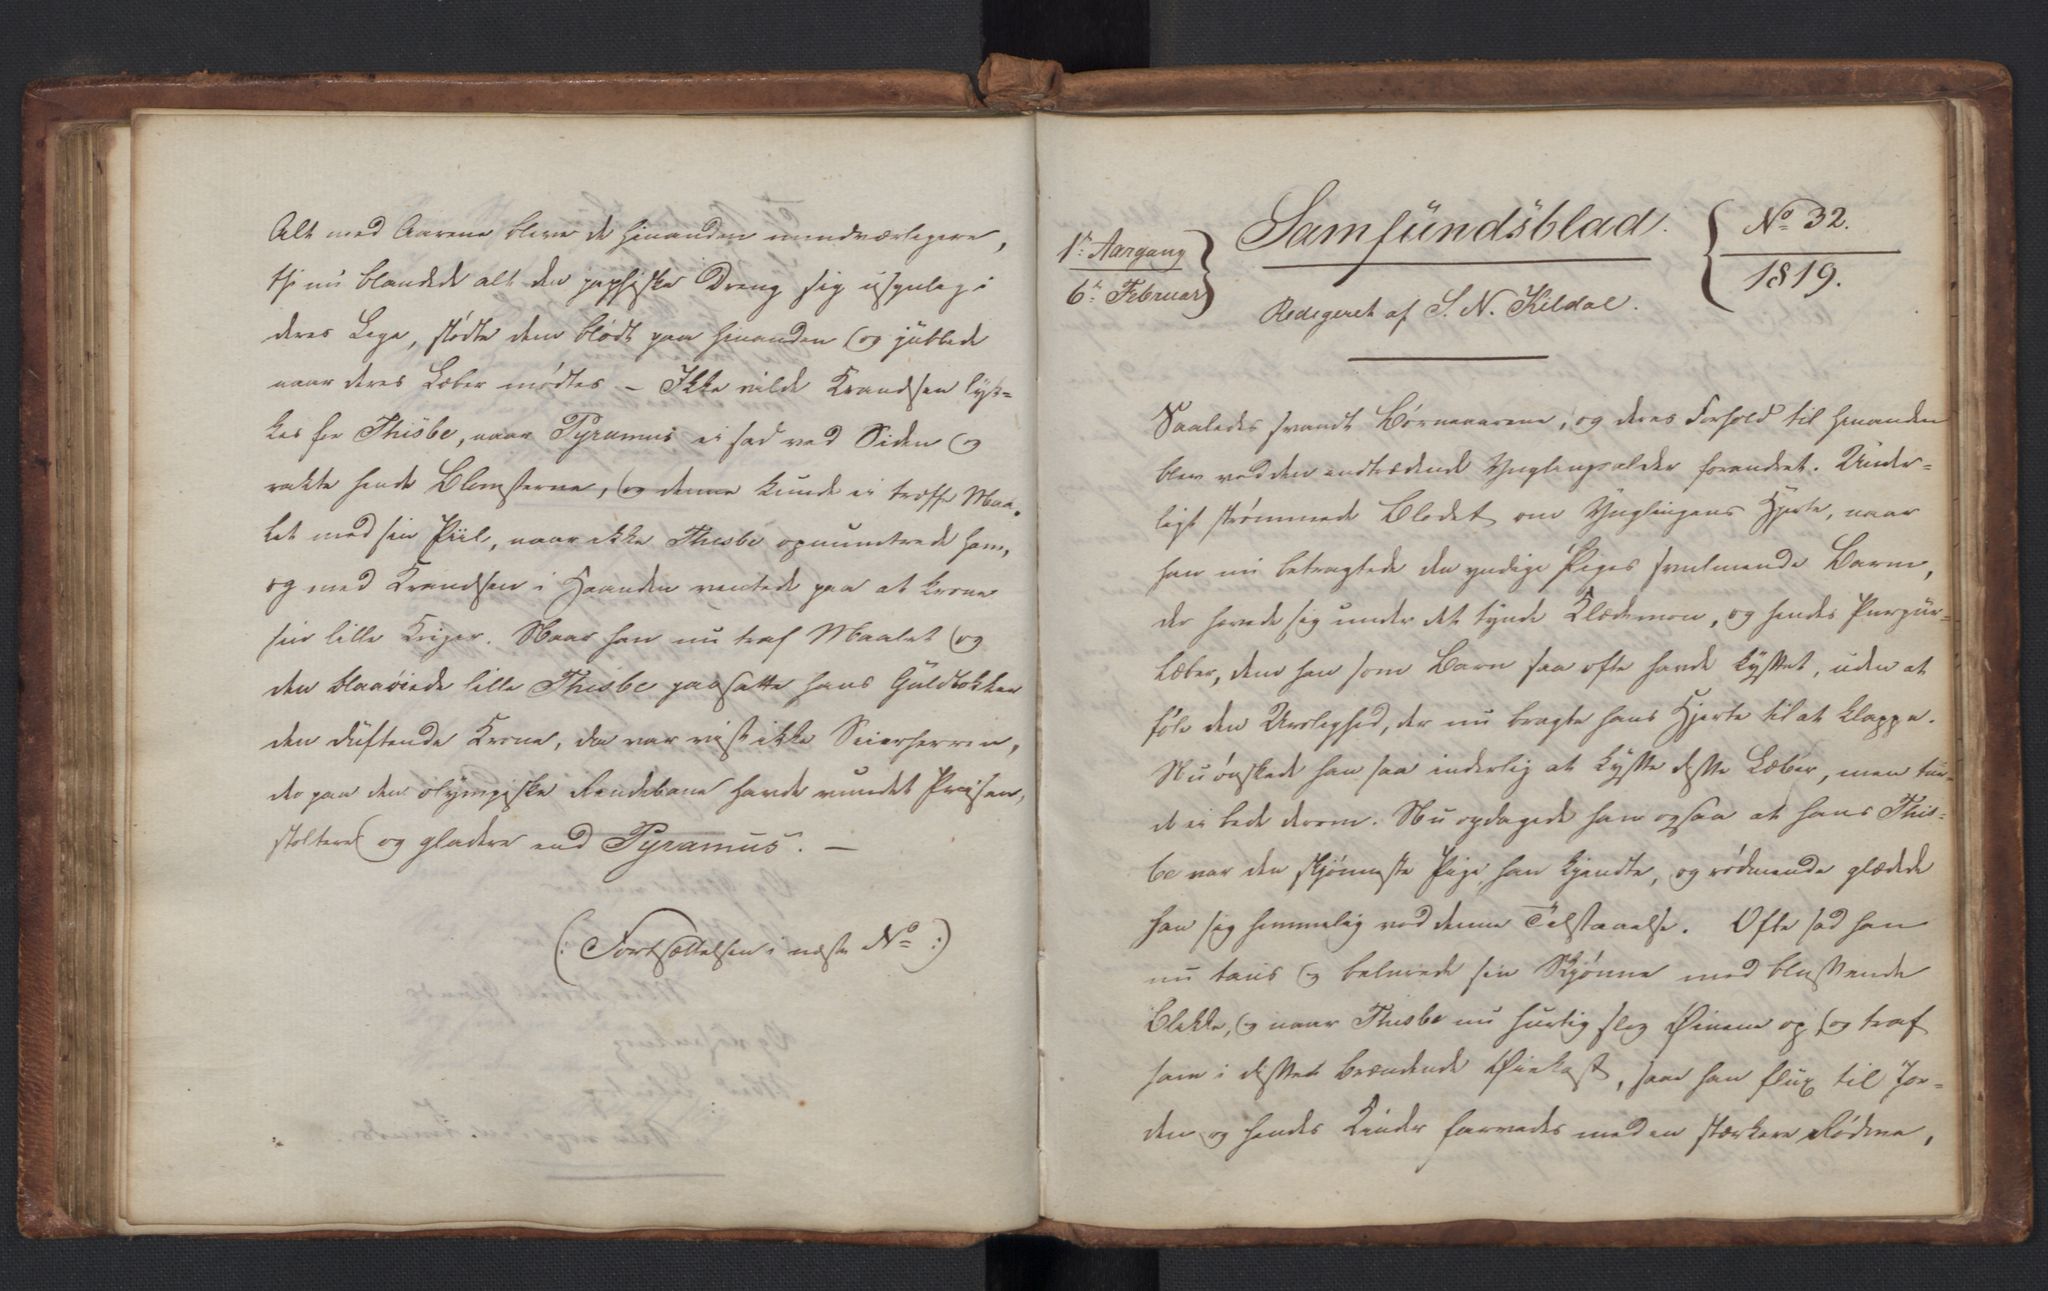 Alt med Aarene bleve de hinanden uundværligere,
thi nu blandede alt den paphiske Dreng sig usynlig i
deres Lege, stødte dem blødt paa hinanden og jublede
naar deres Læber mødtes – Ikke vilde Krandsen lyk-
kes for Thisbe, naar Pyramus ei sad ved Siden og
rakte hende Blomsterne, og denne kunde ei træffe Maa-
let med sin Piil, naar ikke Thisbe opmuntrede ham,
og med Krandsen i Haanden ventede paa at krone
sin lille Kriger. Naar han nu traf Maalet og
den blaaøiede lille Thisbe paasatte hans Guldlokker
den duftende Krone, da var vist ikke Seierherren,
der paa den olympiske Rendebane havde vundet Prisen,
stoltere og gladere end Pyramus. –
(: Fortsættelsen i næste No :)
1r. Aargang
6r. Februar
Samfundsblad.
Redigeret af S. N. Kildal.
No 32.
1819.
Saaledes svandt Børneaarene, og deres Forhold til hinanden
blev ved den indtrædende Ynglingsalder forandret. Under-
ligt strømmede Blodet om Ynglingens Hjerte, naar
han nu betragtede den yndige Piges svulmende Barm,
der hævede sig under det tynde Klædemon, og hendes Purpur-
Læber, dem han som Barn saa ofte havde kysset, uden at
føle den Urolighed, der nu bragte hans Hjerte til at klappe.
Nu ønskede han saa inderlig at kysse disse Læber, men tur-
de ei bede derom. Nu opdagede han ogsaa at hans This-
be var den skjønneste Pige han kjendte, og rødmende glædede
han sig hemmelig ved denne Tilstaaelse. Ofte sad han
nu taus og belurede sin Skjønne med blussende
Blikke, og naar Thisbe nu hurtig slog Øinene op og traf
ham i disse brændende Øiekast, saae han flux til Jor-
den og hendes Kinder farvedes med en stærkere Rødme,